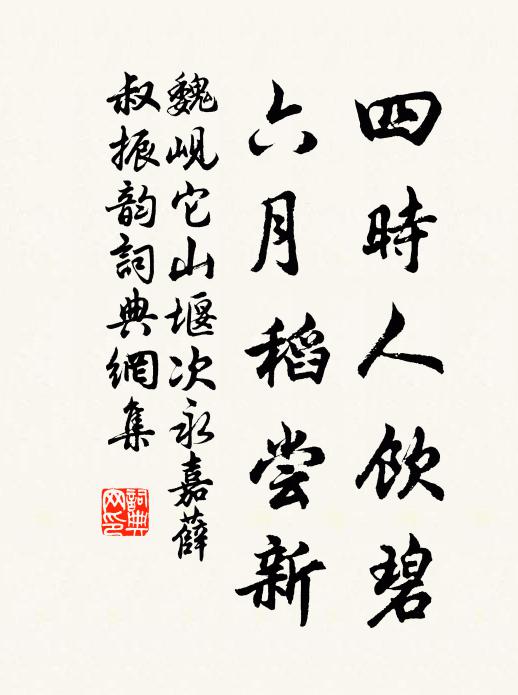 四時人飲碧
六月稻尝新
魏峴它山堰次永嘉薛
叔振韵詞典網集
詞典网印